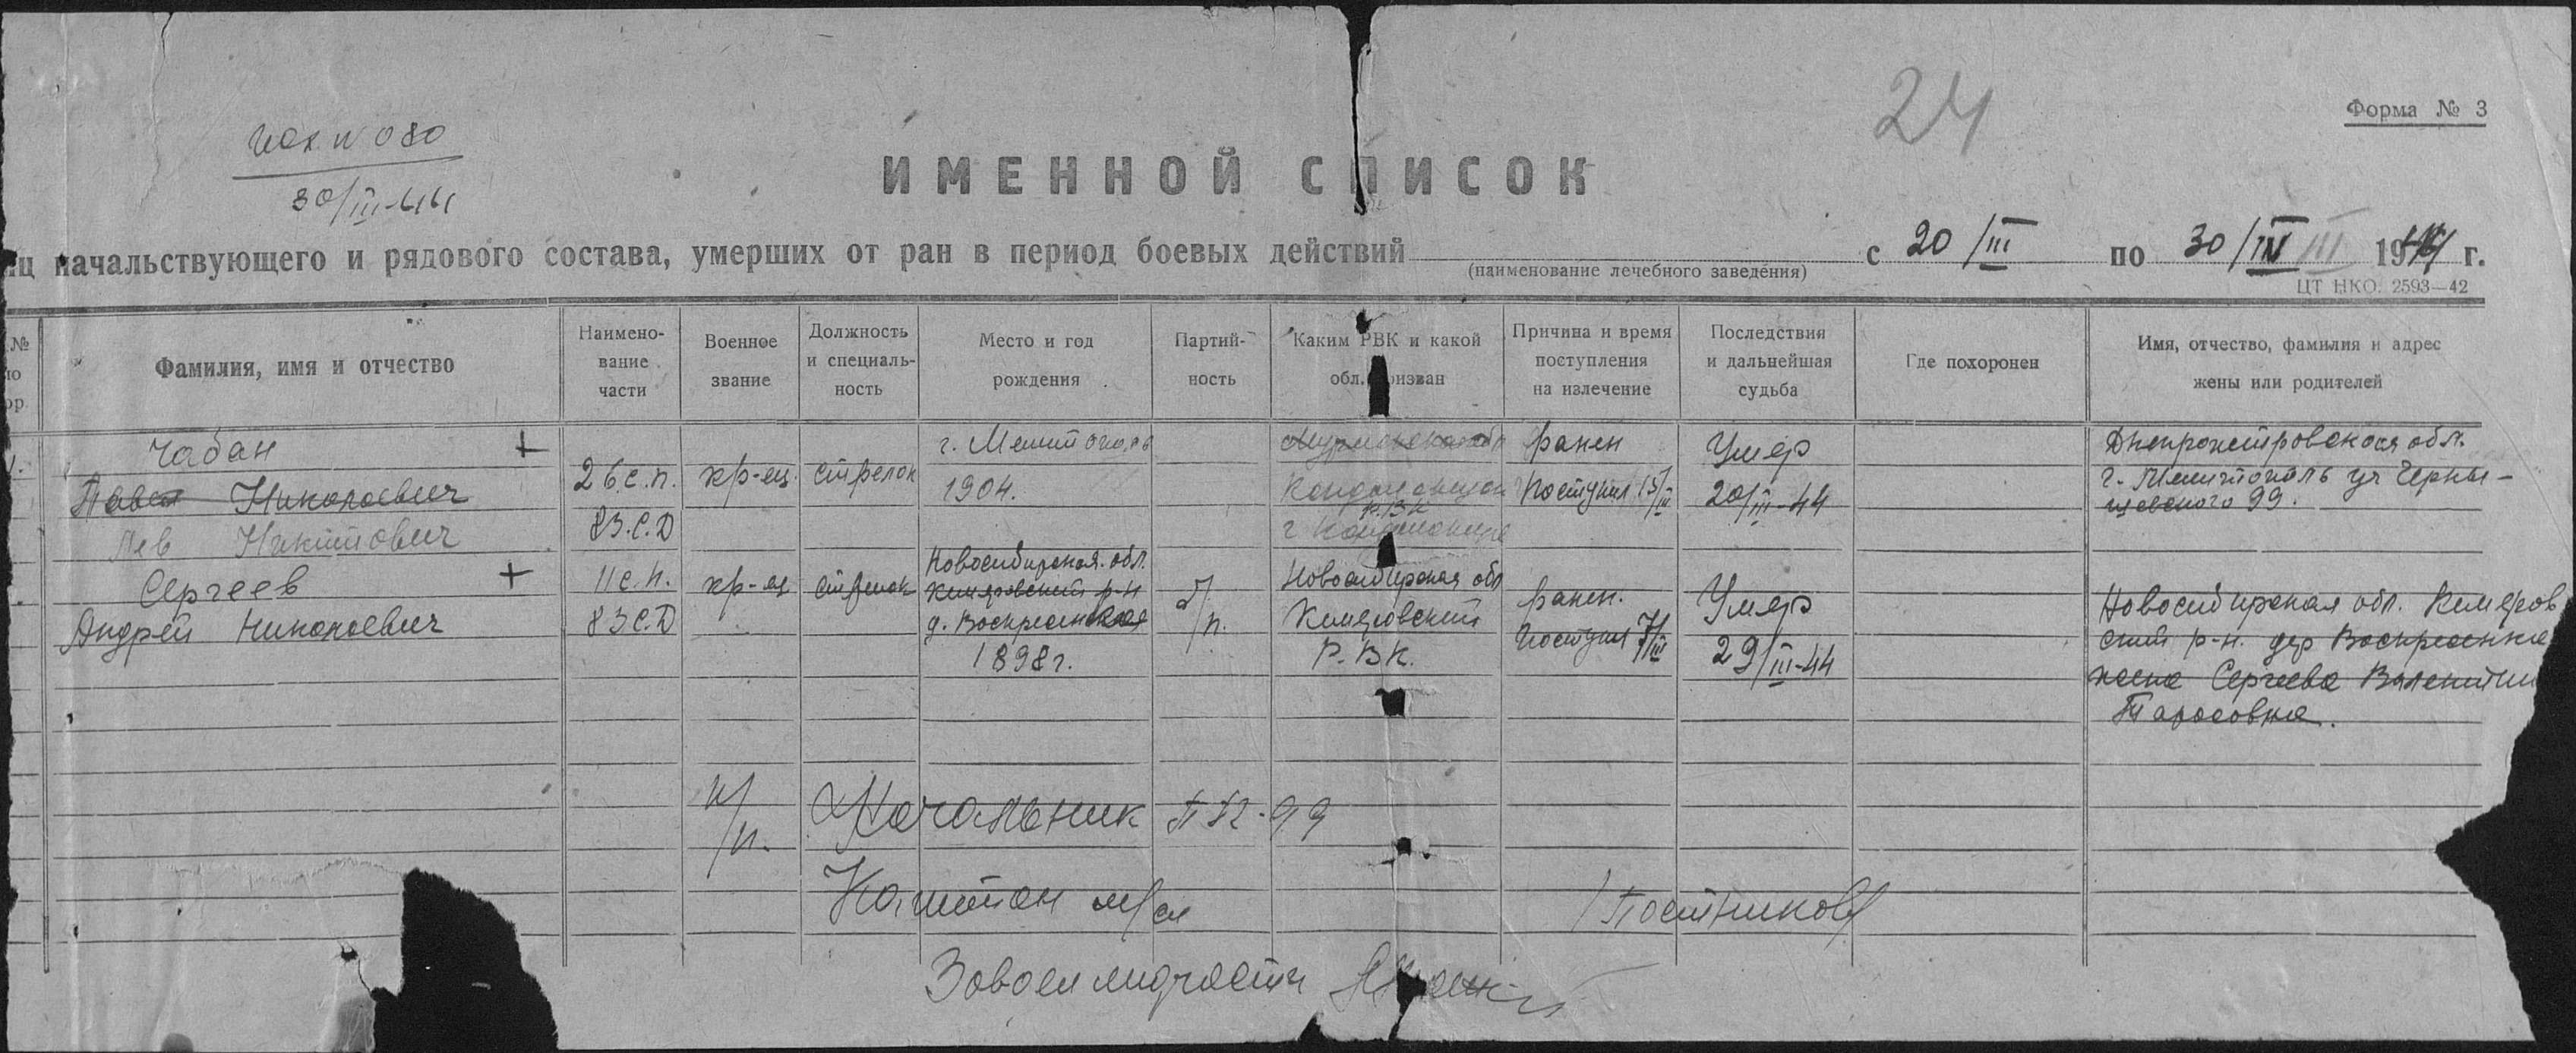 Исх N 080
30/III-44
24
Форма № 3
ИМЕННОЙ СПИСОК
иц начальствующего и рядового состава, умерших от ран в период боевых действий с 20/III по 30/III 1944 г.
(наименование лечебного заведения)
ЦТ НКО. 2593—42
№ по ор.
Фамилия, имя и отчество
Наимено-
вание
части
Военное
звание
Должность
и специаль-
ность
Место и год
рождения
Партий-
ность
Каким РВК и какой
обл. призван
Причина и время
поступления
на излечение
Последствия
и дальнейшая
судьба
Где похоронен
Имя, отчество, фамилия и адрес
жены или родителей
1.
Чабан +
Павел Николаевич
Лев Никитович
26 с.п.
83.С.Д
кр-ец.
стрелок
г. Мелитополь
1904.
Мурманская обл
Кандалакшск
РВК
г Кандалакша
ранен
Поступил 15/III
Умер
20/III-44
Днепропетровская обл.
г. Мелитополь ул Черны-
шевского 99.
Сергеев +
Андрей Николаевич
11 с.п.
83 С.Д
кр-ец
стрелок
Новосибирская обл.
Кемеровский р-н
д. Воскресенская
1898 г.
б/п.
Новосибирская обл
Кемеровский
Р.В.К.
ранен.
Поступил 7/III
Умер
29/III-44
Новосибирская обл. Кемеров
ский р-н. дер Воскресенка
жена Сергеева Валентин
Тарасовна.
п/п.
Начальник ППГ-99
Капитан м/сл
/Постников/
Завделмедчасти